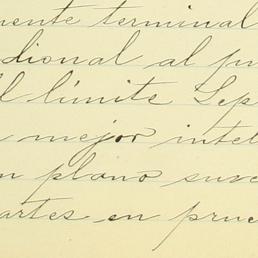 mente terminal
dional al pu
l límite Sep
mejor intel
n plano suve
artes en prue